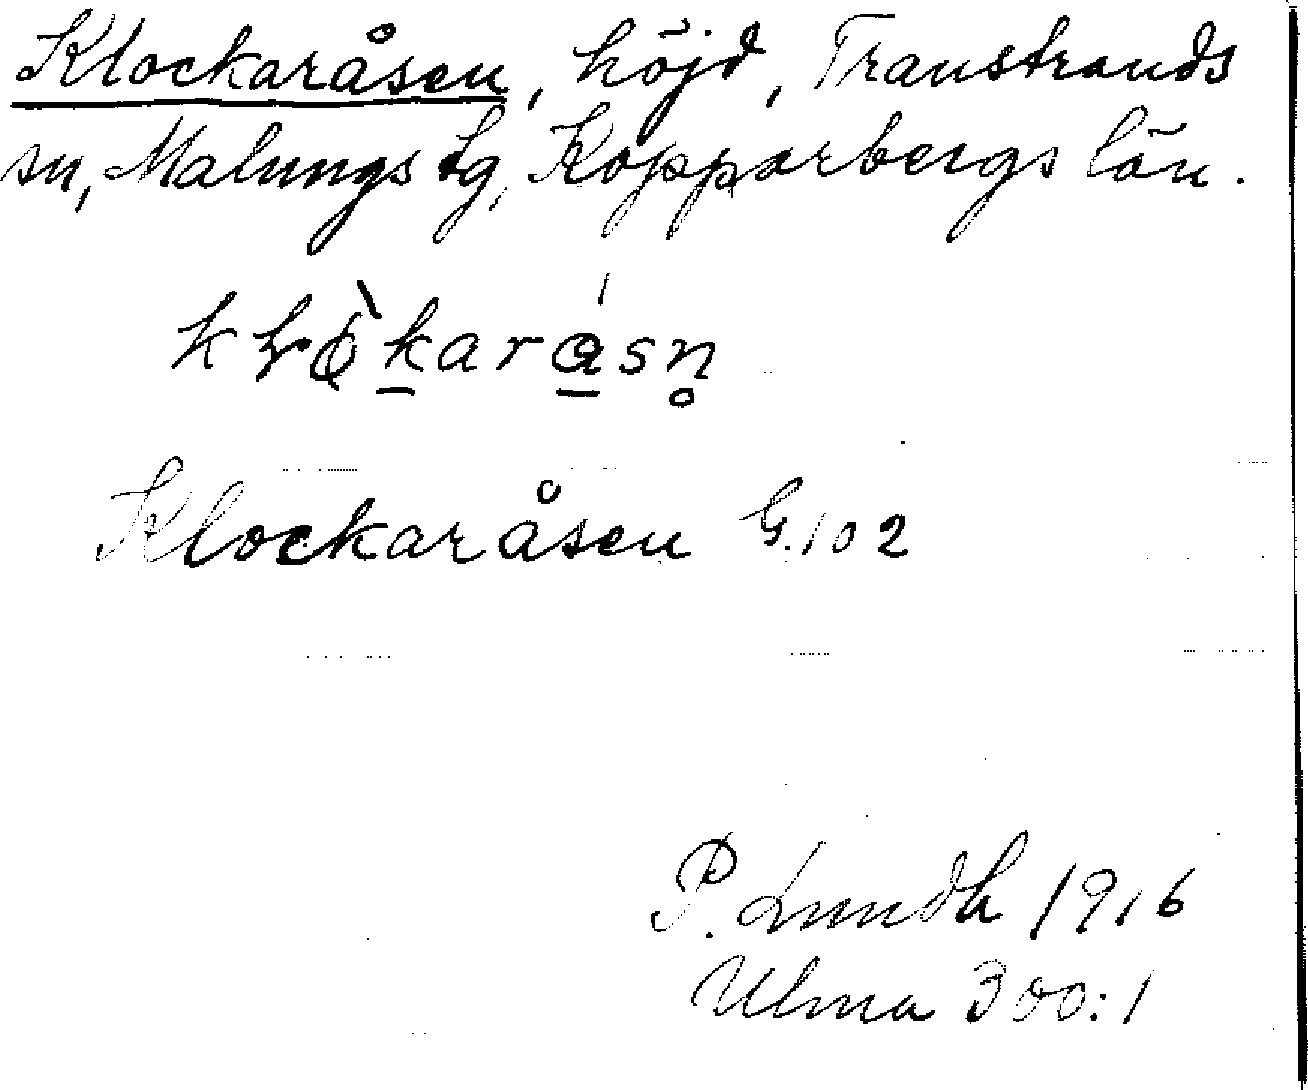 Klockaråsen, höjd, Transtrands
sn, Malungs tg, Kopparbergs län.
Klockaråsen G. 102
P. Lundh 1916
Ulma 300:1